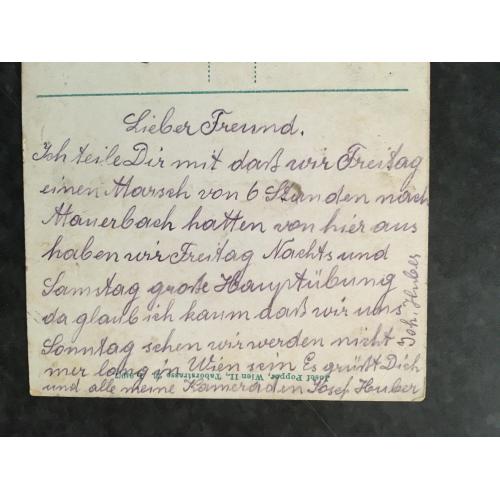 Lieber Freund.
Ich teile Dir mit daß wir Freitag
einen Marsch von 6 Stunden nach
Mauerbach hatten von hier aus
haben wir Freitag Nachts und
Samstag große Hauptübung
da glaub ich kaum daß wir uns
Sonntag sehen wir werden nicht
mer lang in Wien sein Es grüßt Dich
und alle meine Kameraden Josef Huber
Joh. Huber
Josef Popper, Wien II., Taborstrasse